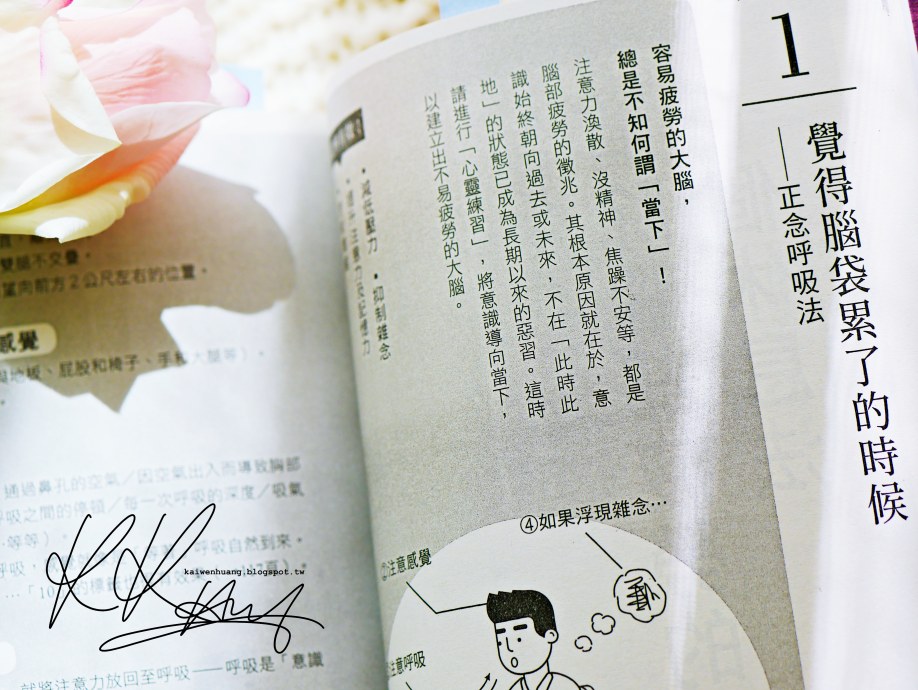 1
覺得腦袋累了的時候
——正念呼吸法
容易疲勞的大腦，
總是不知何謂「當下」！
注意力渙散、沒精神、焦躁不安等，都是
腦部疲勞的徵兆。其根本原因就在於，意
識始終朝向過去或未來，不在「此時此
地」的狀態已成為長期以來的惡習。這時
請進行「心靈練習」，將意識導向當下，
以建立出不易疲勞的大腦。
•減低壓力 •抑制雜念
注意力及記憶力
④如果浮現雜念…
注意感覺
注意呼吸
雙腳不交疊。
望向前方2公尺左右的位置。
感覺
地板、屁股和椅子、手和大腿等）。
通過鼻孔的空氣／因空氣出入而導致胸部
呼吸之間的停頓／每一次呼吸的深度／吸氣
等等）。
呼吸自然到來。
kaiwenhuang.blogspot.tw
就將注意力放回至呼吸——呼吸是「意識